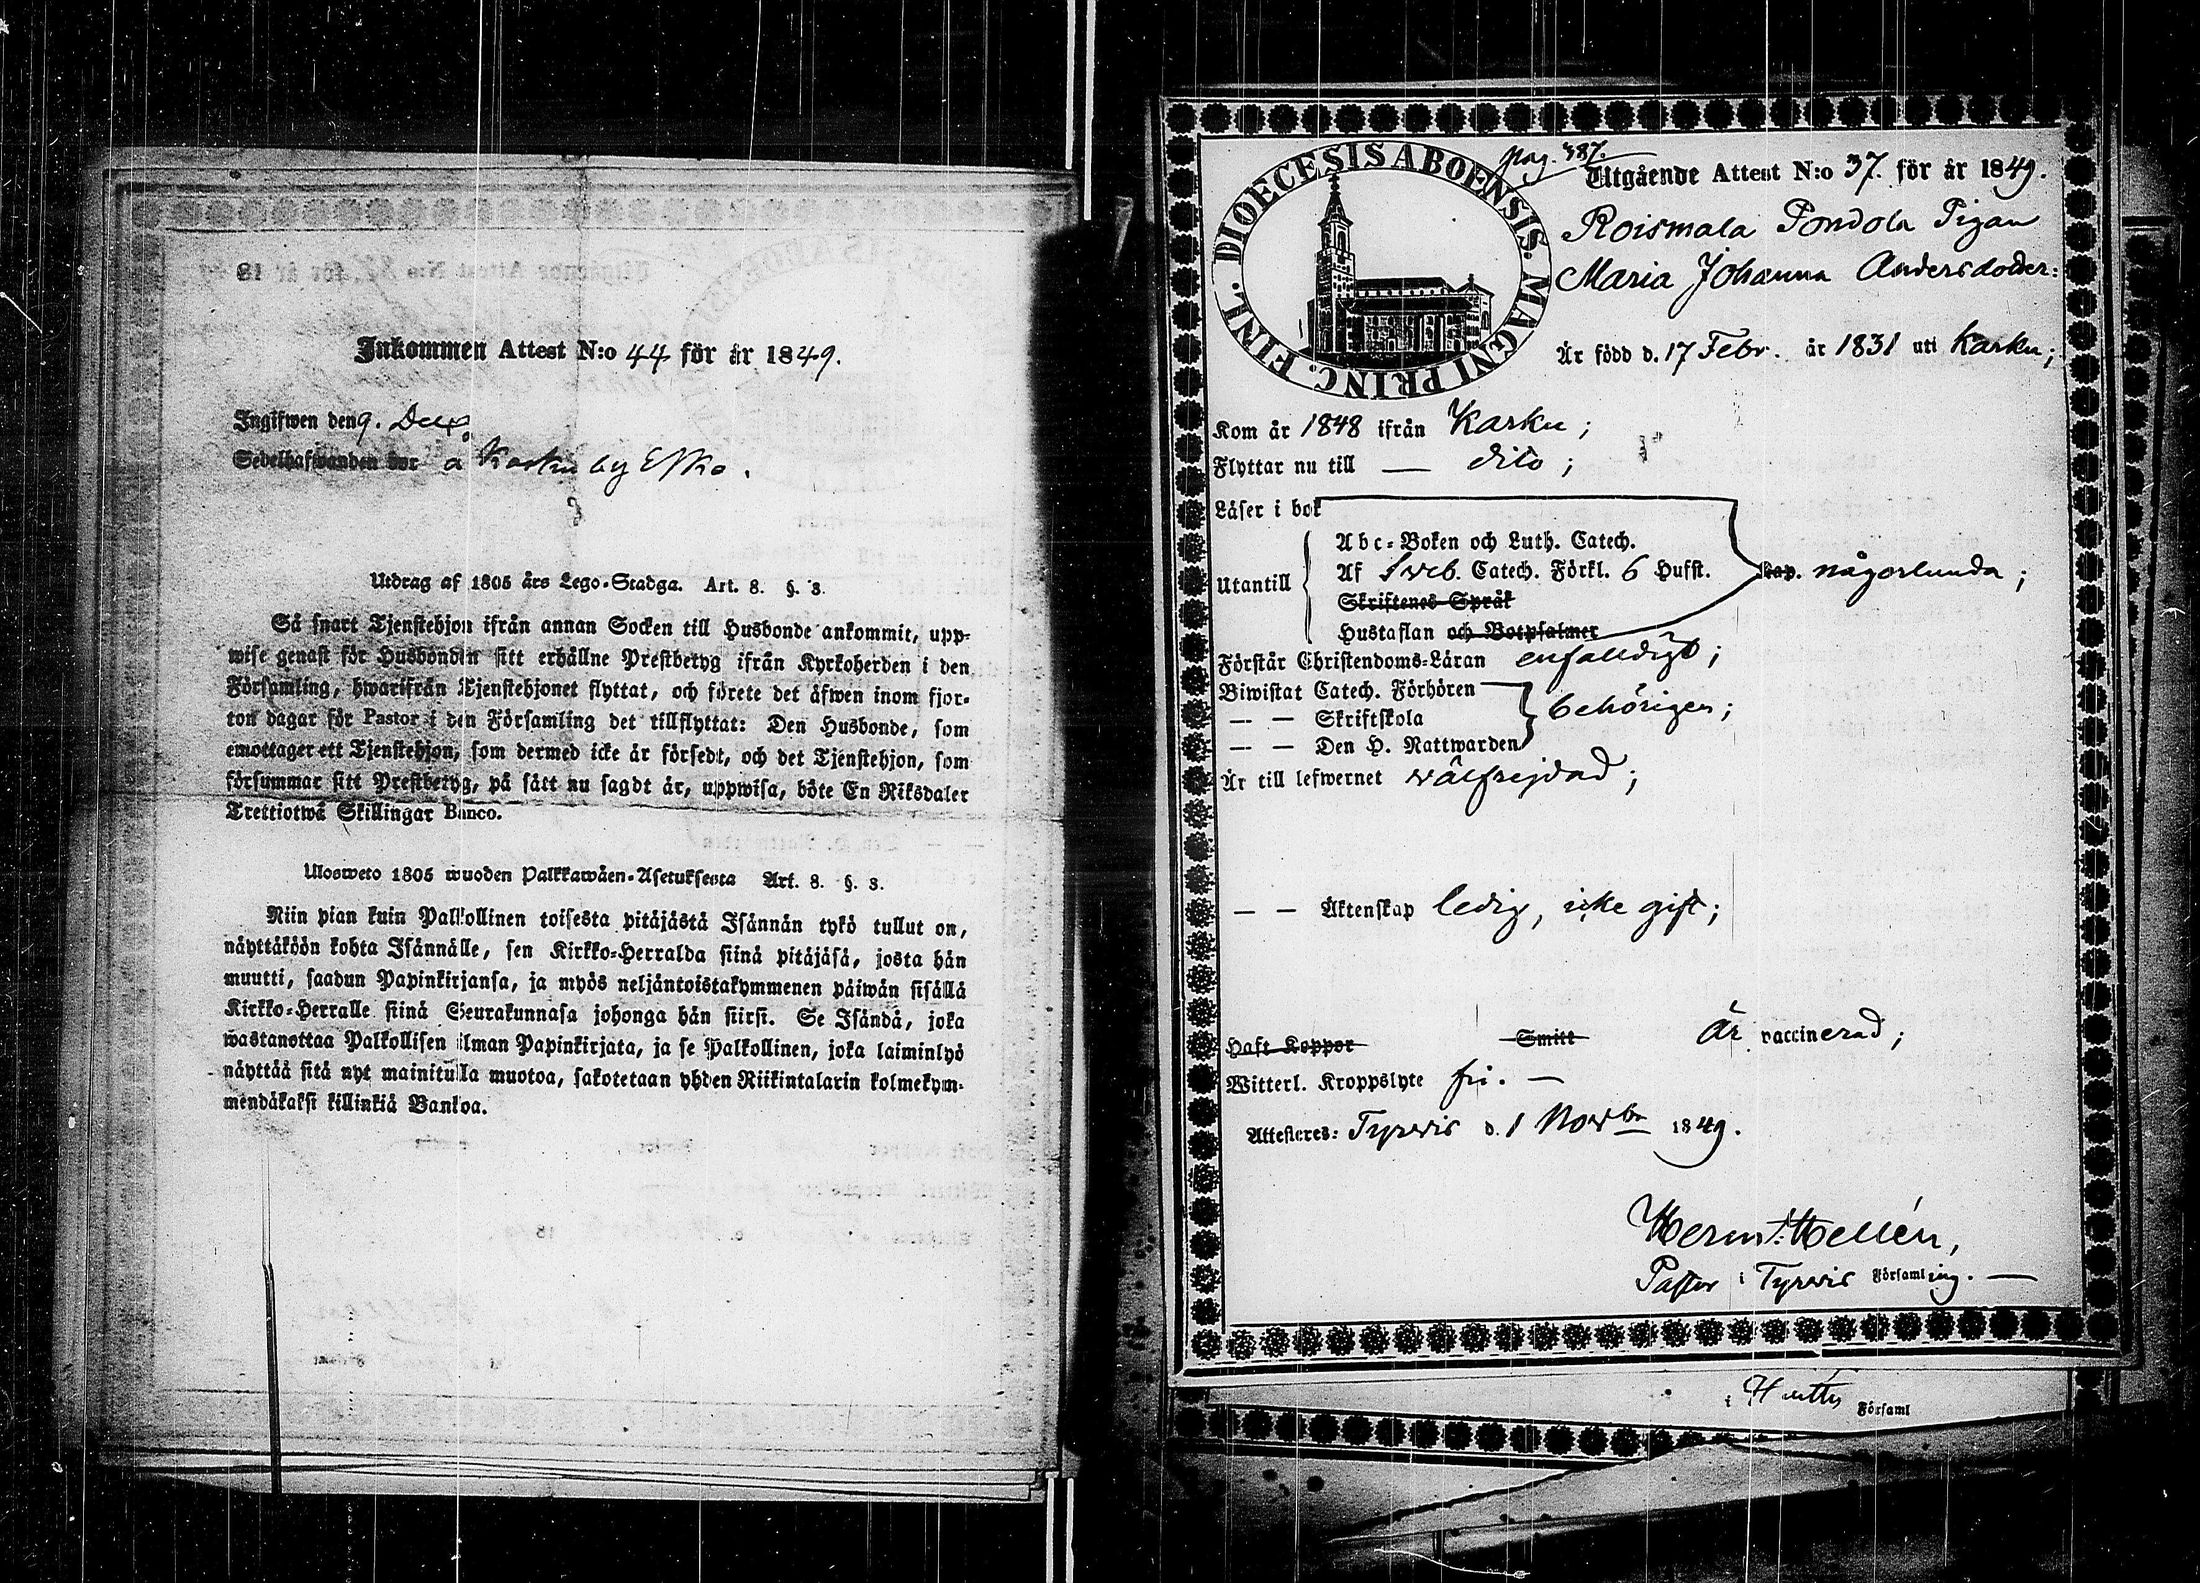 Inkommen Attest N:o 44 för år 1849.
Ingifwen den 9. Dec
Sedelhafwanden bor a Karku by Esko.
Utdrag af 1805 års Lego-Stadga. Art. 8. §. 3.
Så snart Tjenstehjon ifrån annan Socken till Husbonde ankommit, upp-
wise genast för Husbonden sitt erhållne Prestbetyg ifrån Kyrkoherden i den
Församling, hwarifrån Tjenstehjonet flyttat, och förete det åfwen inom fjor-
ton dagar för Pastor i den Församling det tillflyttat: Den Husbonde, som
emottager ett Tjenstehjon, som dermed icke är försedt, och det Tjenstehjon, som
försummar sitt Prestbetyg, på sått nu sagdt är, uppwisa, böte En Riksdaler
Trettiotwå Skillingar Banco.
Ulosweto 1805 wuoden Palkkawäen-Asetuksesta Art. 8. §. 3.
Niin pian kuin Palkollinen toisesta pitäjästä Isännän tykö tullut on,
näyttäköön kohta Isännälle, sen Kirkko-Herralda siinä pitäjäsä, josta hän
muutti, saadun Papinkirjansa, ja myös neljäntoistakymmenen päiwän sisällä
Kirkko-Herralle siinä Seurakunnasa johonga hän siirsi. Se Isändä, joka
wastanottaa Palkollisen ilman Papinkirjata, ja se Palkollinen, joka laiminlyö
näyttää sitä nyt mainitulla muotoa, sakotetaan yhden Riikintalarin kolmekym-
mendäkaksi killinkiä Bankoa.
pag. 387.
DIOECESIS ABOENSIS. MAGNI PRINC. FINL.
Utgående Attest N:o 37. för år 1849.
Roismala Pondola Pigan
Maria Johanna Andersdotter:
Är född d. 17 Febr. år 1831 uti Karku;
Kom år 1848 ifrån Karku;
Flyttar nu till — dito;
Läser i bok
Abc-Boken och Luth. Catech.
Utantill Af Sveb. Catech. Förkl. 6 Hufst. Kap. någorlunda;
Skriftenes Språk
Hustaflan och Botpsalmer
Förstår Christendoms-Läran enfaldigt;
Biwistat Catech. Förhören
— — Skriftskola behörigen;
— — Den H. Nattwarden
Är till lefwernet välfrejdad;
— — Äktenskap ledig, icke gift;
Haft Koppor Smitt Är vaccinerad;
Witterl. Kroppslyte fri. —
Attesteres: Tyrvis d. 1 Novbr 1849.
Herm: Hellén,
Pastor i Tyrvis Församling. —
i Församl